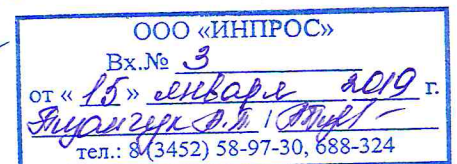 ООО «ИНПРОС»
Вх.№ 3
от « 15 » января 2019 г.
тел.: 8(3452) 58-97-30, 688-324